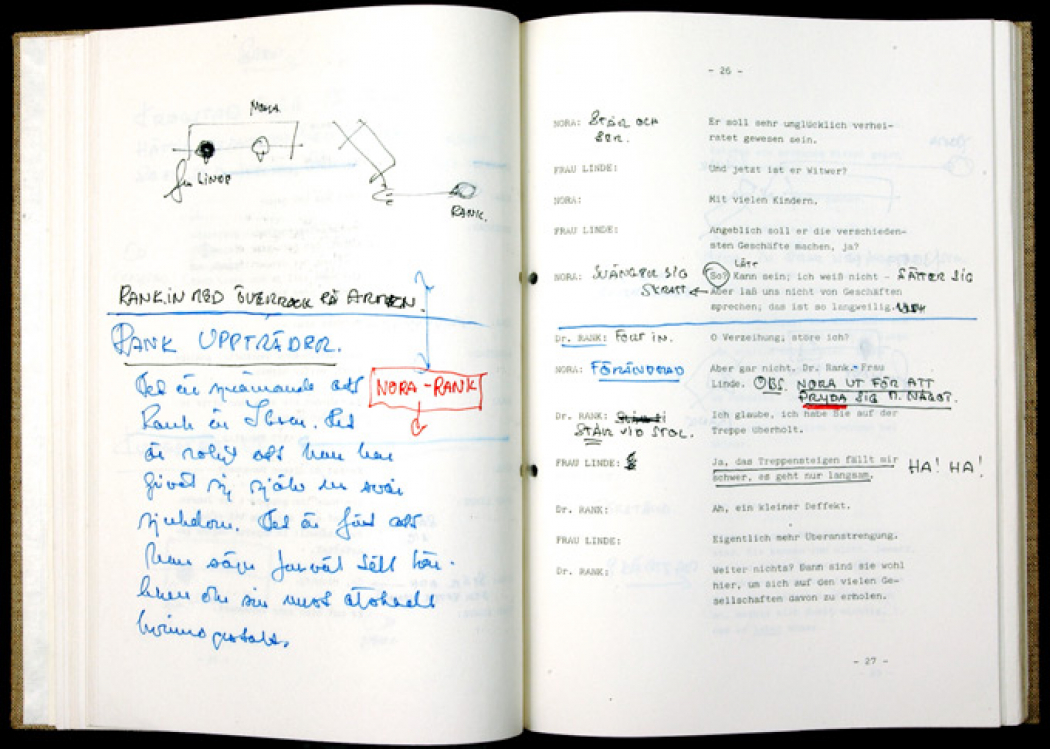 NORA
LINDE
RANK.
RANK IN MED ÖVERROCK PÅ ARMEN.
RANK UPPTRÄDER.
Det är spännande att
NORA - RANK
Rank är Det
är roligt att han har
givit sig själv en svår
sjukdom. Det är först att
han säger farväl till
sin mest älskade
- 26 -
NORA: STÅR OCH Er soll sehr unglücklich verhei-
SER. ratet gewesen sein.
FRAU LINDE: Und jetzt ist er Witwer?
NORA: Mit vielen Kindern.
FRAU LINDE: Angeblich soll er die verschieden-
sten Geschäfte machen, ja?
LÄTT
NORA: SVÄNGER SIG So? Kann sein; ich weiß nicht - SÄTTER SIG
SKRATT Aber laß uns nicht von Geschäften
sprechen; das ist so langweilig.
Dr. RANK: IN. O Verzeihung; störe ich?
NORA: FÖRÄNDRAD Aber gar nicht. Dr. Rank.- Frau
Linde. OBS. NORA UT FÖR ATT
PRYDA SIG M. NÅGOT.
Dr. RANK: Ich glaube, ich habe Sie auf der
STÅR VID STOL. Treppe überholt.
FRAU LINDE: Ja, das Treppensteigen fällt mir HA! HA!
schwer, es geht nur langsam.
Dr. RANK: Ah, ein kleiner Deffekt.
FRAU LINDE: Eigentlich mehr Überanstrengung.
Dr. RANK: Weiter nichts? Dann sind sie wohl
hier, um sich auf den vielen Ge-
sellschaften davon zu erholen.
- 27 -